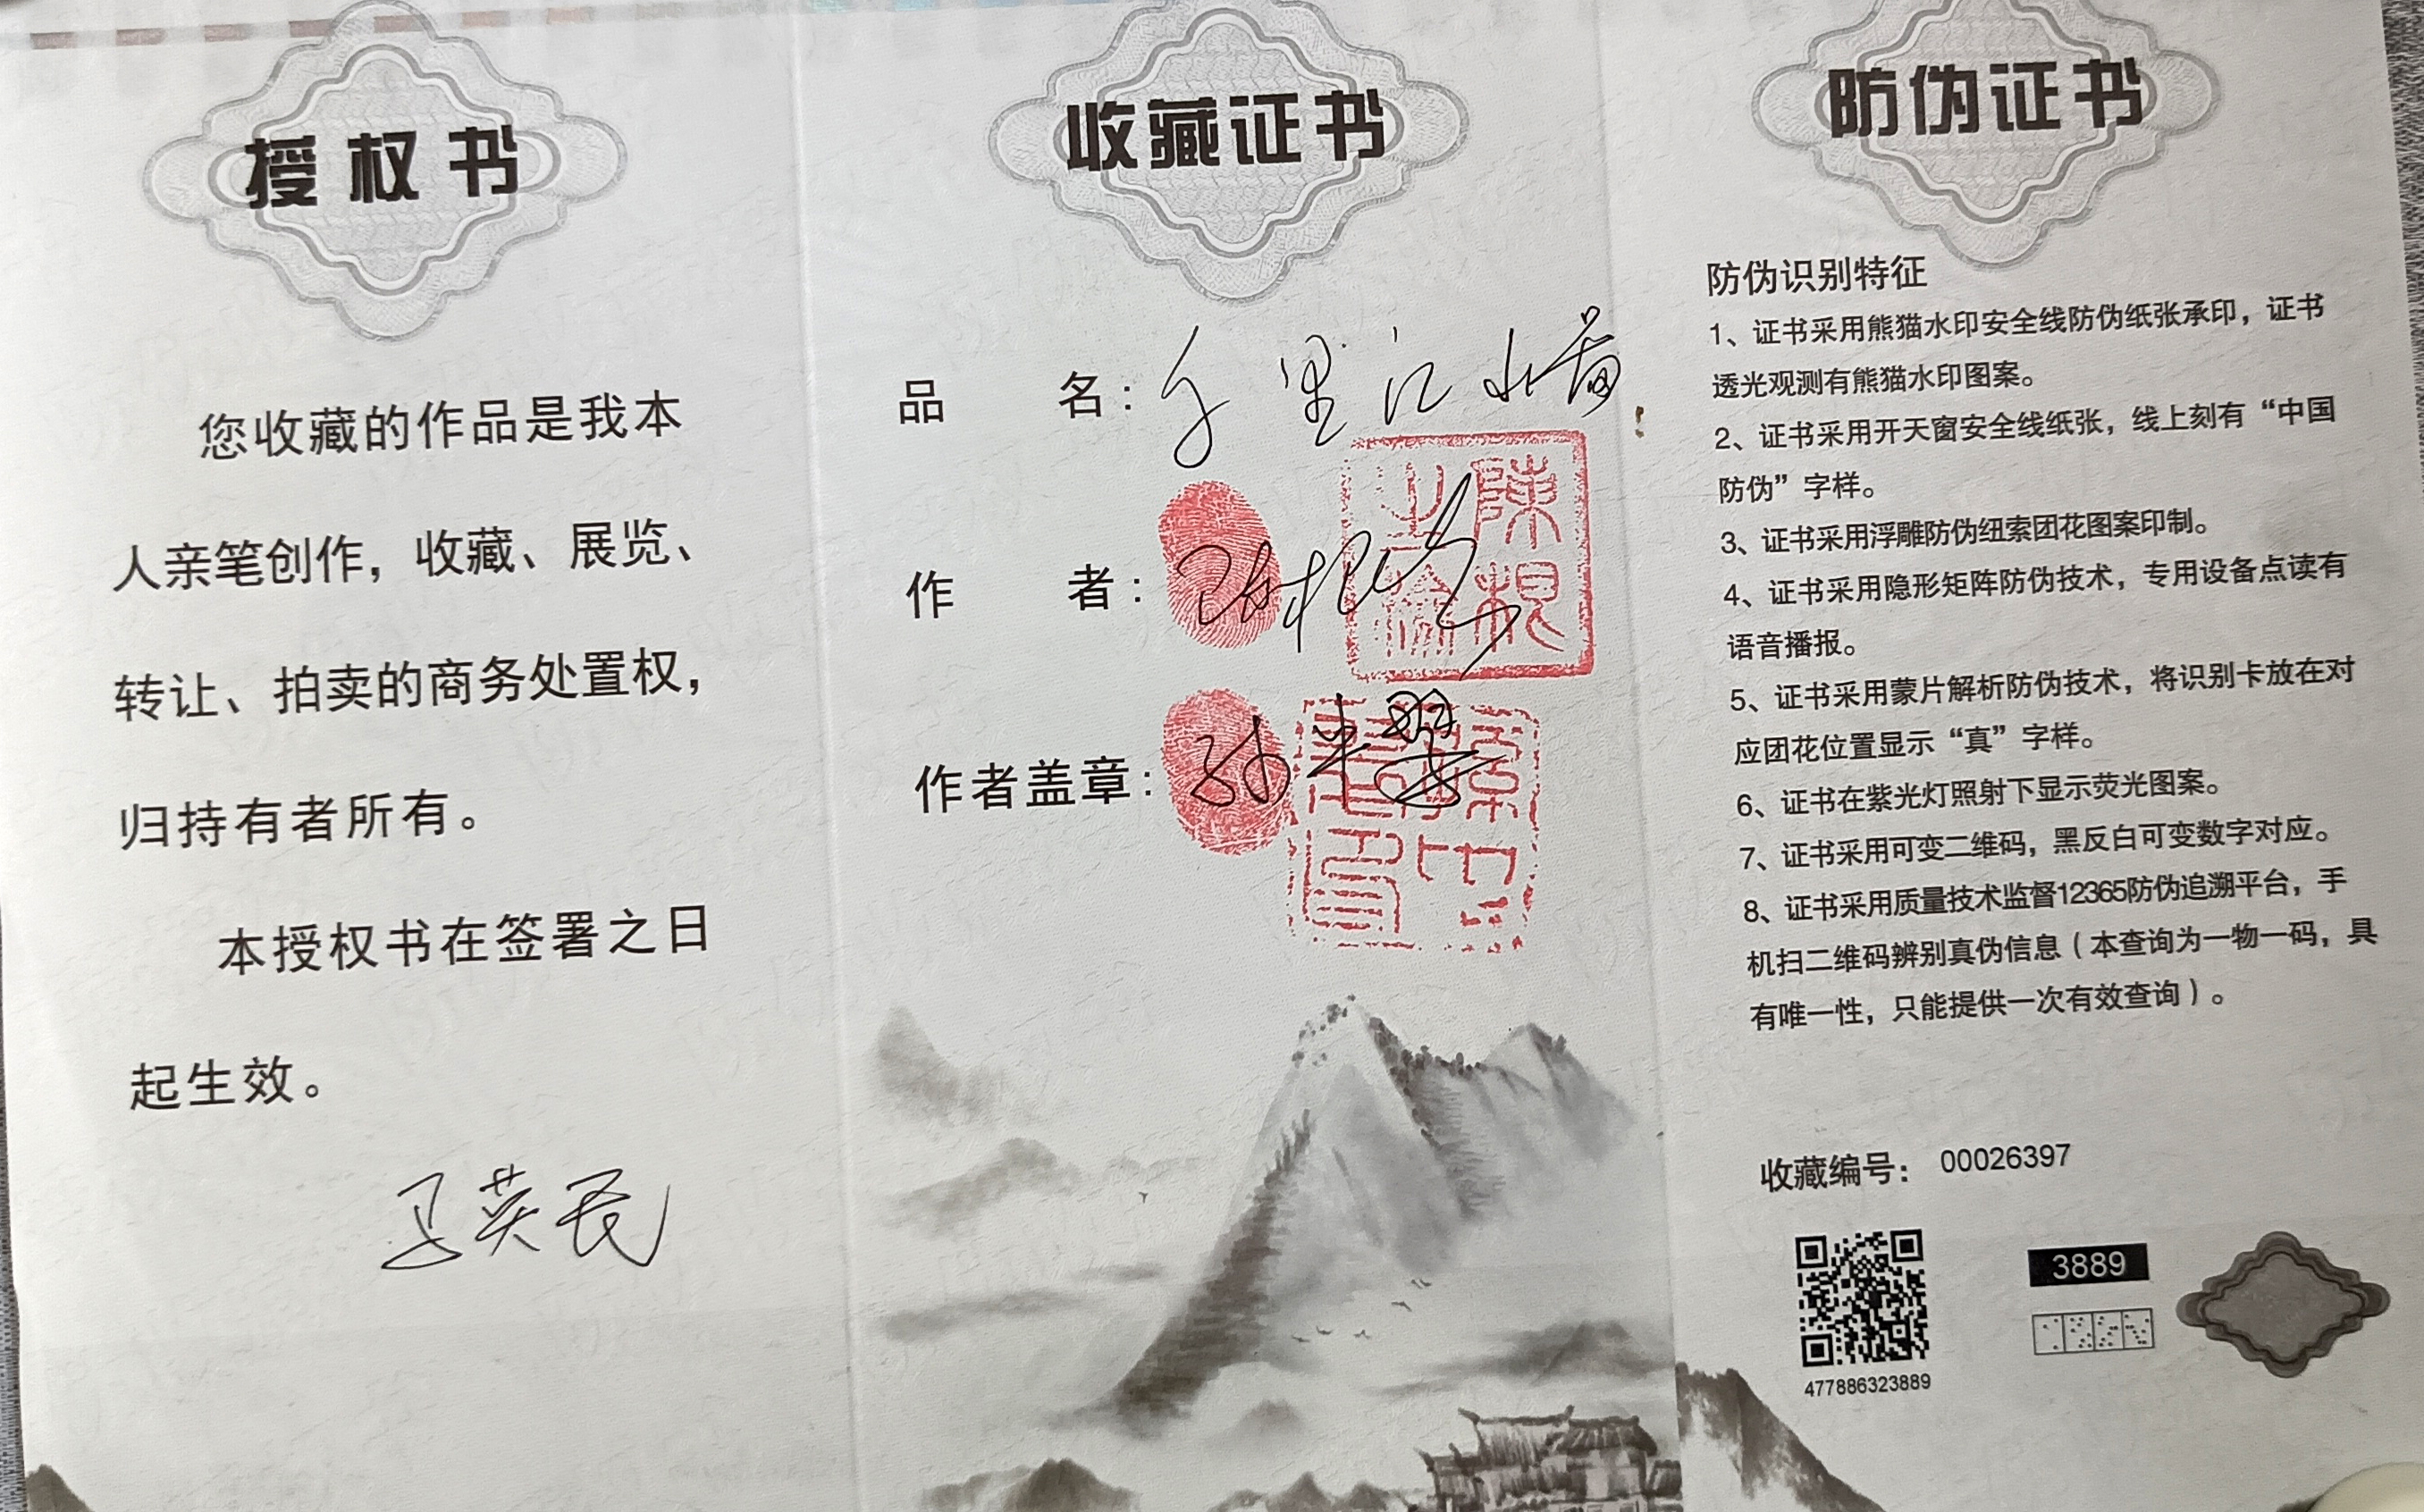 授权书
您收藏的作品是我本
人亲笔创作，收藏、展览、
转让、拍卖的商务处置权，
归持有者所有。
本授权书在签署之日
起生效。
英民
收藏证书
品 名：千里江水
作 者：
作者盖章：
防伪证书
防伪识别特征
1、证书采用熊猫水印安全线防伪纸张承印，证书
透光观测有熊猫水印图案。
2、证书采用开天窗安全线纸张，线上刻有“中国
防伪”字样。
3、证书采用浮雕防伪纽索团花图案印制。
4、证书采用隐形矩阵防伪技术，专用设备点读有
语音播报。
5、证书采用蒙片解析防伪技术，将识别卡放在对
应团花位置显示“真”字样。
6、证书在紫光灯照射下显示荧光图案。
7、证书采用可变二维码，黑反白可变数字对应。
8、证书采用质量技术监督12365防伪追溯平台，手
机扫二维码辨别真伪信息（本查询为一物一码，具
有唯一性，只能提供一次有效查询）。
收藏编号： 00026397
3889
477886323889